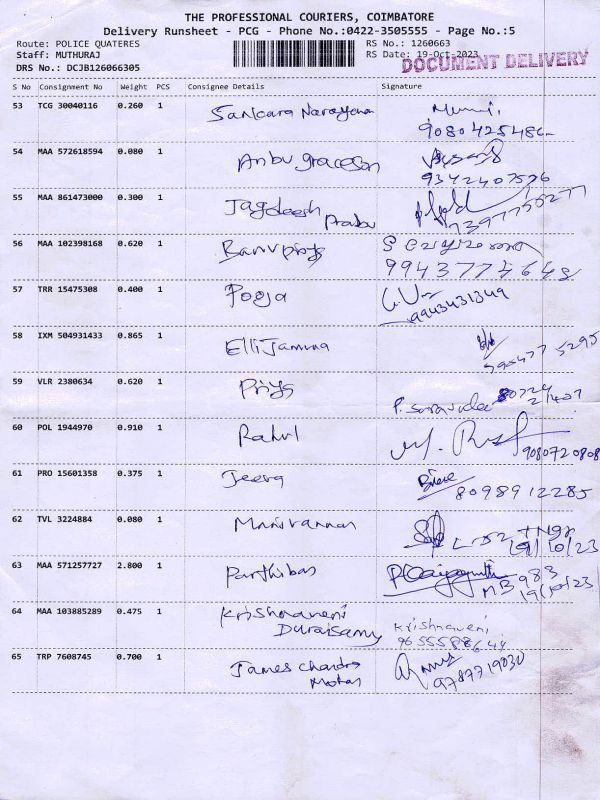 THE PROFESSIONAL COURIERS, COIMBATORE
Delivery Runsheet - PCG - Phone No.:0422-3505555 - Page No.:5
Route: POLICE QUATERES RS No.: 1260663
Staff: MUTHURAJ RS Date: 19-Oct-2023
DOCUMENT DELIVERY
DRS No.: DCJB126066305
S No Consignment No Weight PCS Consignee Details Signature
53 TCG 30040116 0.260 1 Sankara Narayana
9080425486
54 MAA 572618594 0.080 1 Anbu graceson
9342407576
55 MAA 861473000 0.300 1 Jagdeesh Prabu
7397750277
56 MAA 102398168 0.620 1 Banupriya
57 TRR 15475308 0.400 1 Pooja
9943431349
58 IXM 504931433 0.865 1 Elli Jamuna
59 VLR 2380634 0.620 1 Priya
60 POL 1944970 0.910 1 Rahul
9080720808
61 PRO 15601358 0.375 1 Jeeva
8098912285
62 TVL 3224884 0.080 1 Manivannan
19/10/23
63 MAA 571257727 2.800 1 Parthiban
19/10/23
64 MAA 103885289 0.475 1 Krishnaveni Duraisamy
Krishnaveni
65 TRP 7608745 0.700 1 James Chandra Mohan
9787719030